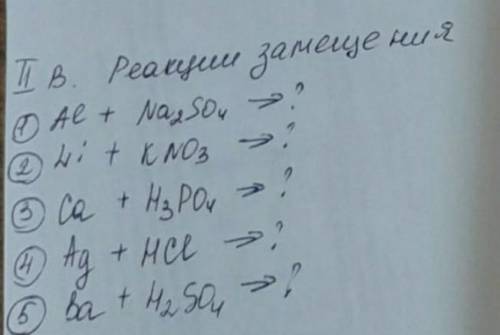 II В. Реакции замещения
① Al + Na₂SO₄ → ?
② Li + KNO₃ → ?
③ Ca + H₃PO₄ → ?
④ Ag + HCl → ?
⑤ Ba + H₂SO₄ → ?